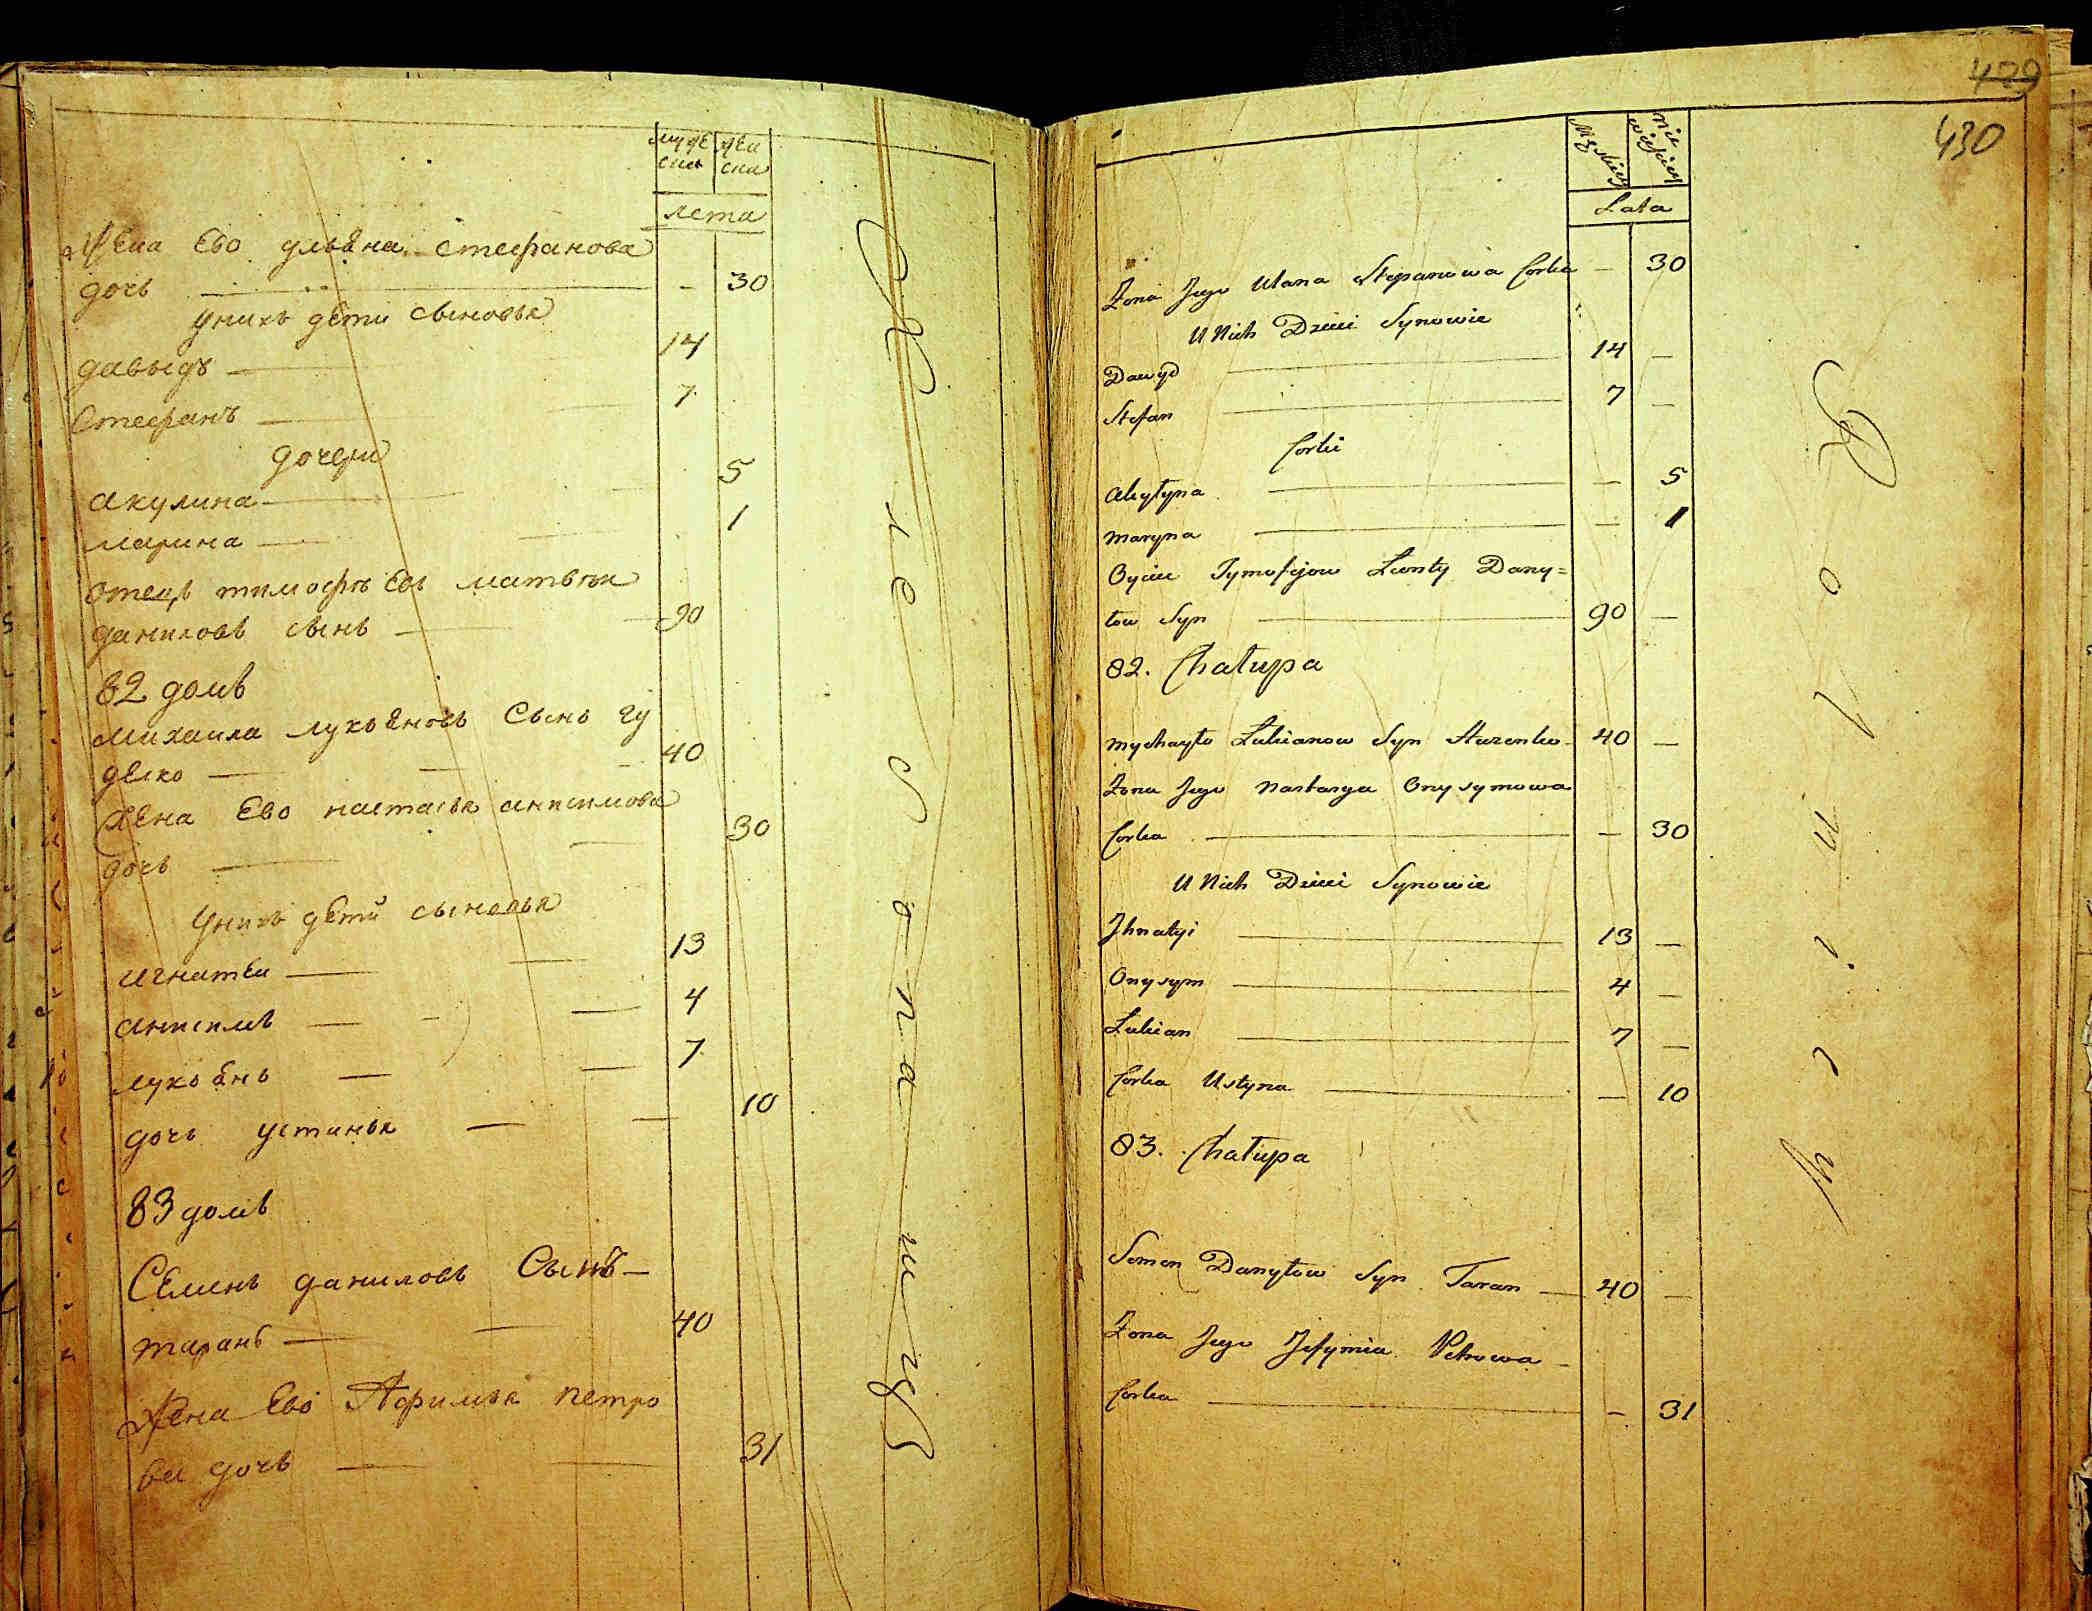 муже
ска
жен
ска
лета
жена Ево ульяна стефанова
дочь — 30
унихъ дети сыновья
давыдъ — 14
Стефанъ — 7
дочери
акулина — 5
марина — 1
отецъ тимофѣ Евъ
даниловъ сынъ — 90
82 домъ
Михаила лукьяновъ Сынъ гу
делко — 40
жена Ево настасья анисимова
дочь — 30
унихъ дети сыновья
игнатеи — 13
анисимъ — 4
лукьянъ — 7
дочь устинья — 10
83 домъ
Семенъ даниловъ Сынъ —
таранъ — 40
Жена Ево Афимья петро
ва дочь — 31
429
430
Męskiey
nie
wieskiey
Lata
Żona Jego Ulana Stepanowa Corka — 30
U Nich Dzieci Synowie
Dawyd — 14 —
Stefan — 7 —
Corki
Akyłyna — 5
Maryna — 1
Oyciec Tymofijow Dany=
łow Syn — 90 —
82. Chałupa
Mychayło Łukianow Syn — 40 —
Żona Jego Nastasya Onysymowa
Corka — 30
U Nich Dzieci Synowie
Jhnatyi — 13 —
Onysym — 4 —
Łukian — 7 —
Corka Ustyna — 10
83. Chałupa
Semen Danyłow Syn Taran — 40 —
Żona Jego Jefymia Petrowa —
Corka — 31